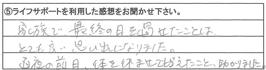 ⑤ライフサポートを利用した感想をお聞かせ下さい。
家族で最終の日を過せたことは
とても良い思い出になりました。
通夜の前日、体を休ませてもらえたこと、助かりました。